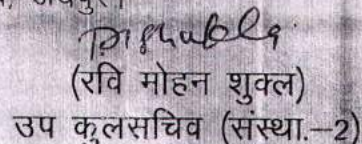 जयपुर।
(रवि मोहन शुक्ल)
उप कुलसचिव (संस्था.–2)